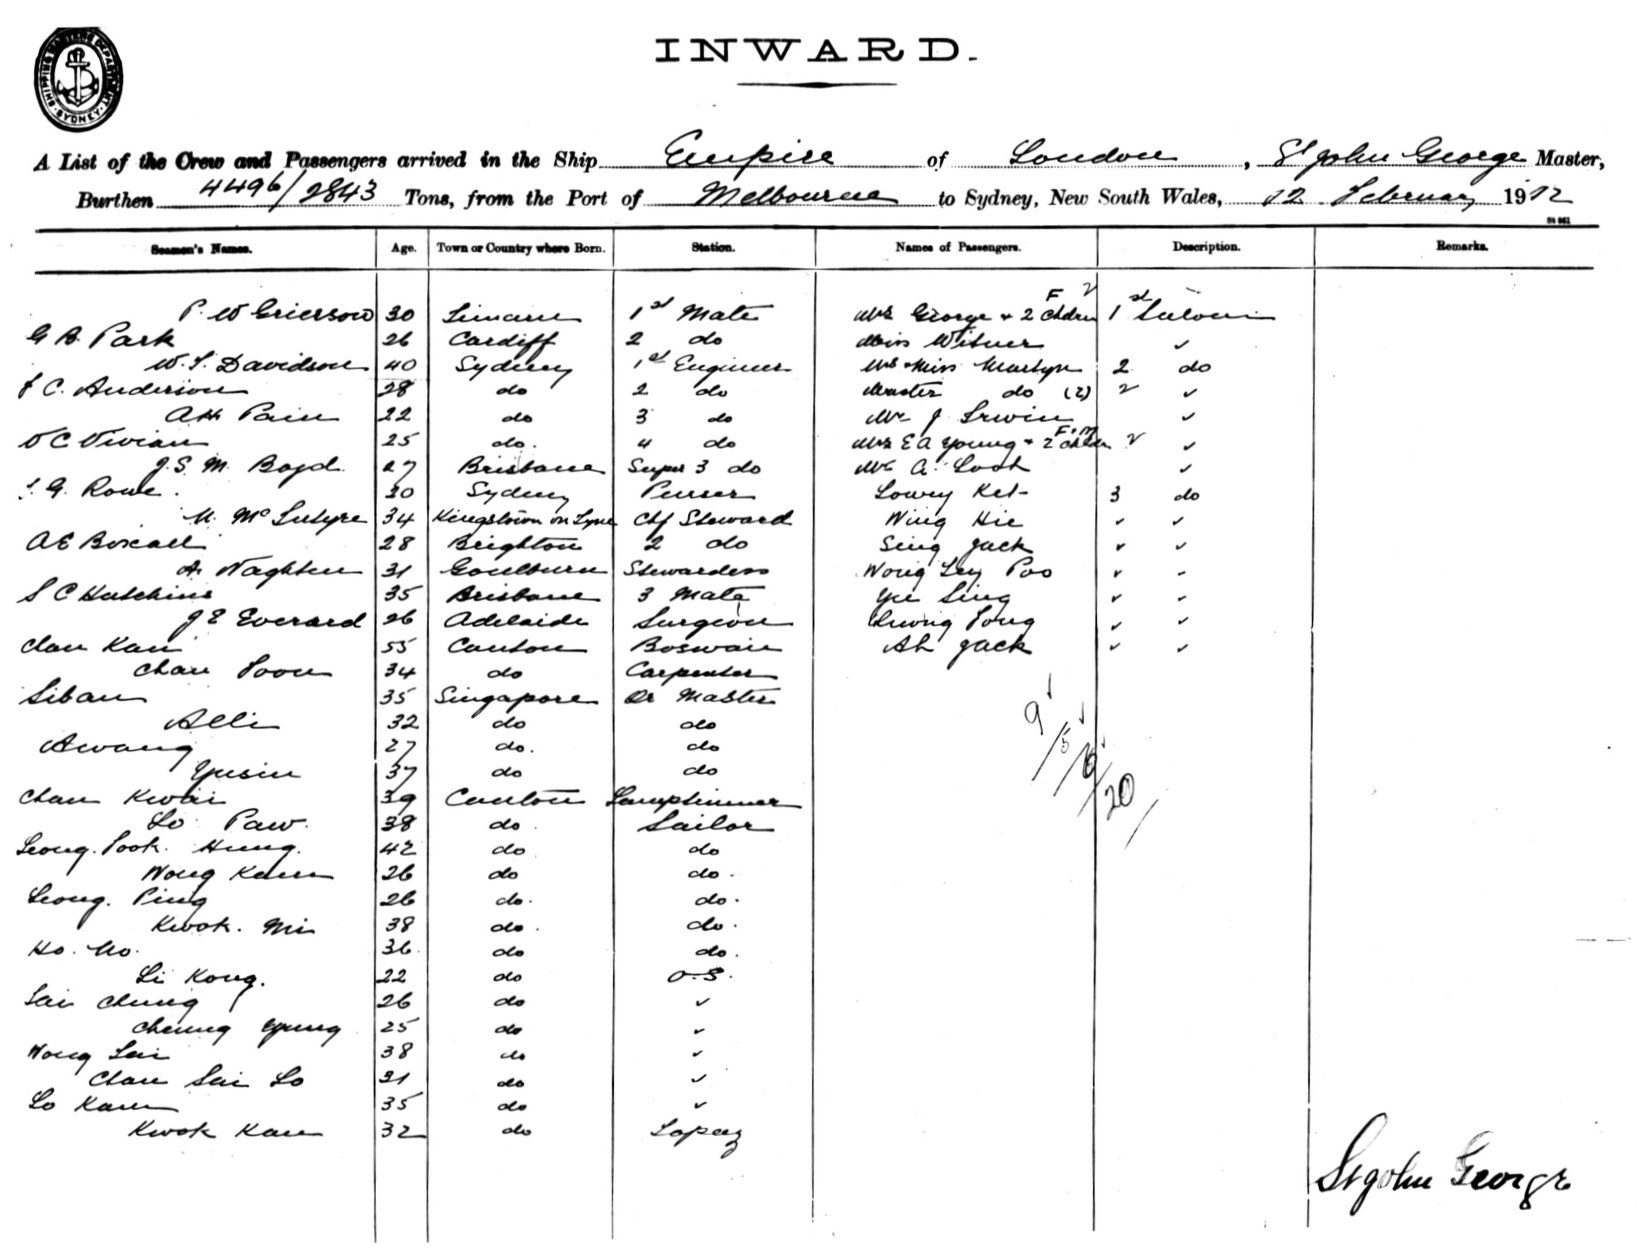 SHIPPING MASTERS DEPARTMENT SYDNEY
INWARD.
A List of the Crew and Passengers arrived in the Ship Empire of London, St John George Master,
Burthen 4496/2843 Tons, from the Port of Melbourne to Sydney, New South Wales, 12 February 1912
St 961
Seamen's Names. Age. Town or Country where Born. Station. Names of Passengers. Description. Remarks.
P. W Grierson 30 1st Mate Mrs George + 2 Chdrn F 2 1st Saloon
G B. Park 26 Cardiff 2 do Miss Witner ✓
W. S. Davidson 40 Sydney 1st Engineer Mrs & Miss Martyn 2 do
C. Anderson 28 do 2 do Master do (2) 2 ✓
AH Pain 22 do 3 do Mr J Irwin ✓
C Vivian 25 do. 4 do Mrs E A Young + 2 Chldn F + M 2 ✓
J. S. M. Boyd. 27 Brisbane Super 3 do Mr A. Cook ✓
G. Rowe. 30 Sydney Purser Lowey Ket 3 do
McIntyre 34 Kingstown on Tyne Chf Steward Wing Hie ✓ ✓
A E Boxall 28 Brighton 2 do Sing Jack ✓ ✓
A. Naghten 31 Goulburn Stewardess Wong Ley Poo ✓ ✓
S C Hutchins 35 Brisbane 3 Mate Yee Sing ✓ ✓
J E Everard 26 Adelaide Surgeon ✓ ✓
Chan Kan 55 Canton Boswain Ah Jack ✓ ✓
Chan Poon 34 do Carpenter
Siban 35 Singapore Qr Master
Alli 32 do do
Awang 27 do. do
Yusin 37 do do
Chan Kwai 39 Canton Lamptrimmer
Lo Paw. 38 do. Sailor
Leong. Pook. Hung. 42 do do
Wong Kam 26 do do.
Leong. Ping 26 do. do.
Kwok. Mi 38 do. do.
Ho. Mo. 36. do do.
Li Kong. 22 do O.S.
Lai Chung 26 do ✓
Cheung Yung 25 do ✓
Wong Lai 38 do ✓
Chan Sai Lo 21 do ✓
Lo Kam 35 do ✓
Kwok Kan 32 do
9/5/6/20/
St John George